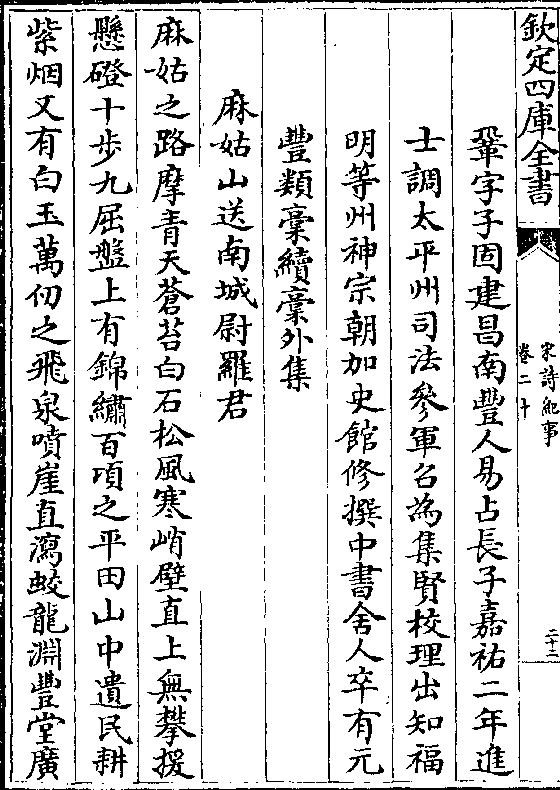 欽定四庫全書
宋詩紀事
卷二十
二十二
鞏字子固建昌南豐人易占長子嘉祐二年進
士調太平州司法參軍召為集賢校理出知福
明等州神宗朝加史館修撰中書舍人卒有元
豐類稾續稾外集
麻姑山送南城尉羅君
麻姑之路摩青天蒼苔白石松風寒峭壁直上無攀援
懸磴十步九屈盤上有錦繡百頃之平田山中遺民耕
紫烟又有白玉萬仞之飛泉噴崖直瀉蛟龍淵豐堂廣